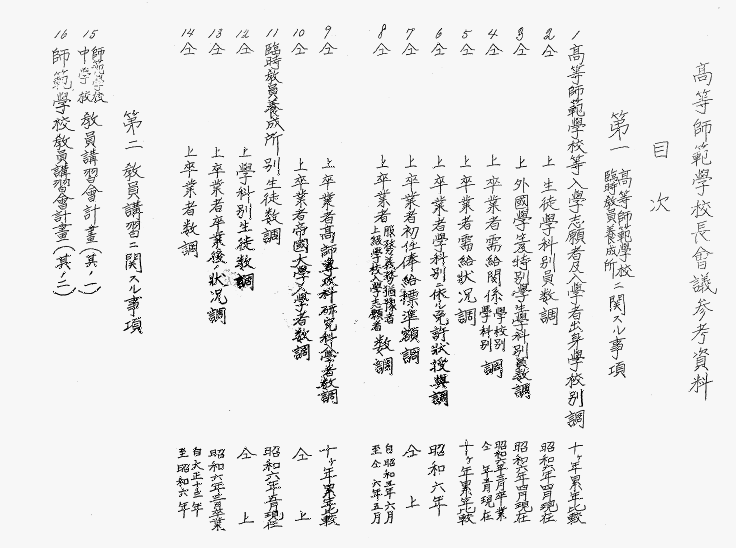 高等師範學校長會議参考資料
目次
第一 高等師範學校 臨時教員養成所 ニ関スル事項
1 高等師範學校等入學志願者及入學者出身學校別調 十ヶ年累年比較
2 仝 上 生徒學科別員数調 昭和六年四月現在
3 仝 上 外國學生及特別學生學科別員数調 昭和六年四月現在
4 仝 上 卒業者需給関係 學校別 學科別 調 昭和六年三月卒業 仝 年 五月現在
5 仝 上 卒業者需給状况調 十ヶ年累年比較
6 仝 上 卒業者學科別ニ依ル免許状授與調 昭和六年
7 仝 上 卒業者初任俸給標準額調 仝 上
8 仝 上 卒業者 服務義務猶豫者 上級學校入學志願者 数調 自昭和五年六月 至仝 六年五月
9 仝 上 卒業者高師専攻科研究科學者数調 十ヶ年累年比較
10 仝 上 卒業者帝國大學入學者数調 仝 上
11 臨時教員養成所別生徒数調 昭和六年五月現在
12 仝 上 學科別生徒数調 仝 上
13 仝 上 卒業者卒業後ノ状况調 昭和六年三月卒業
14 仝 上 卒業者数調 自大正十三年 至昭和六年
第二 教員講習ニ関スル事項
15 師範學校 中學校 教員講習會計畫(其ノ一)
16 師範學校教員講習會計畫(其ノ二)